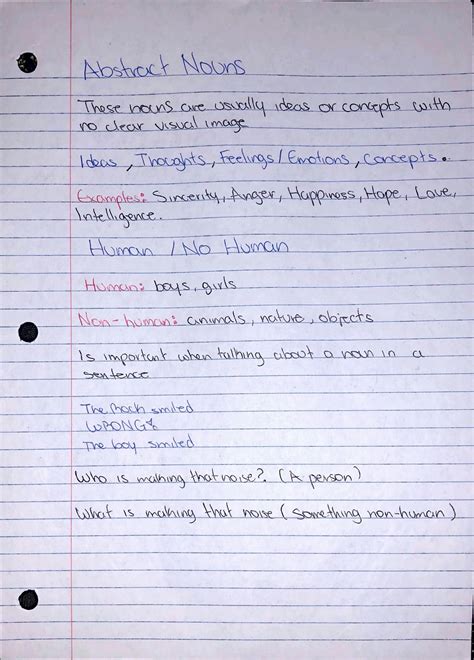 Abstract Nouns
These nouns are usually ideas or concepts with
no clear visual image
Ideas, Thoughts, Feelings/Emotions, Concepts.
Examples: Sincerity, Anger, Happiness, Hope, Love,
Intelligence.
Human / No Human
Human: boys, girls
Non-human: animals, nature, objects
Is important when talking about a noun in a
sentence
The Rock smiled
WRONG
The boy smiled
Who is making that noise?. (A person)
What is making that noise (something non-human)